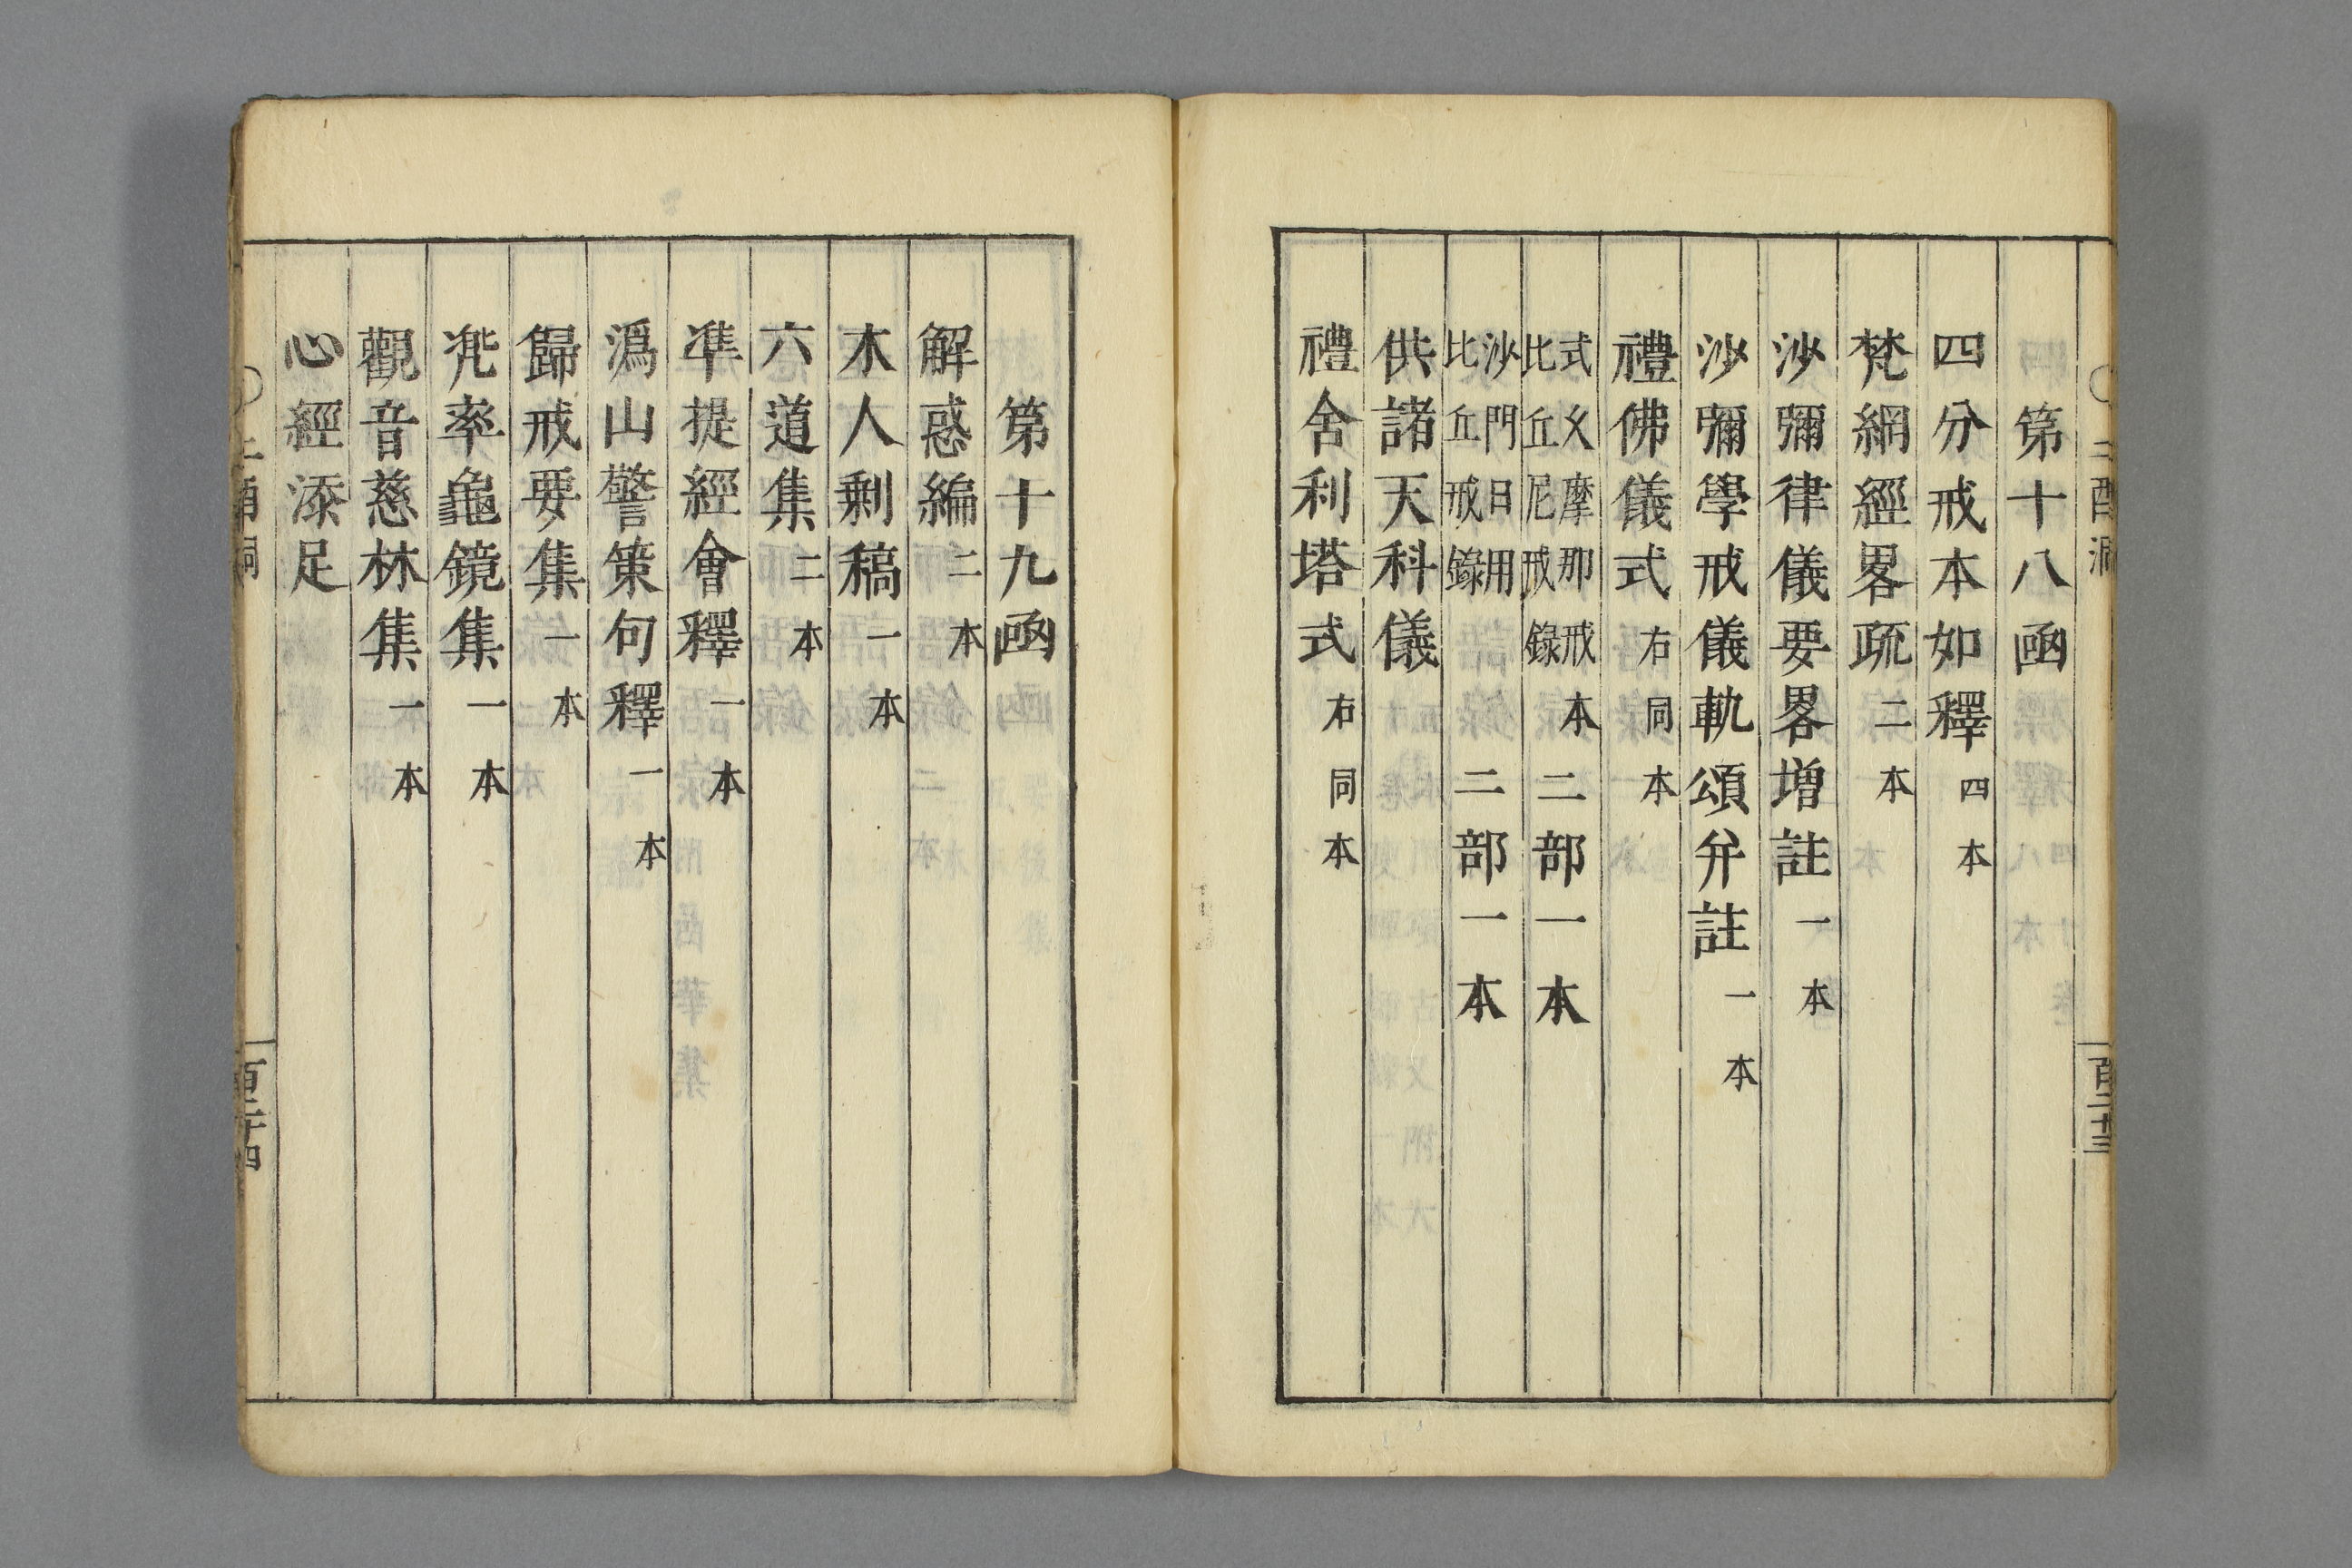 第十八凾
四分戒本如釋四本
梵網經畧疏二本
沙彌律儀要畧增註一本
沙彌學戒儀軌頌弁註一本
禮佛儀式右同本
式叉摩那戒本
比丘尼戒錄
二部一本
沙門日用
比丘戒錄
二部一本
供諸天科儀
禮舍利塔式右同本
百二十三
第十九凾
解惑編二本
木人剩稿一本
六道集二本
準提經會釋一本
溈山警策句釋一本
歸戒要集一本
兠率龜鏡集一本
觀音慈林集一本
心經添足
百二十四